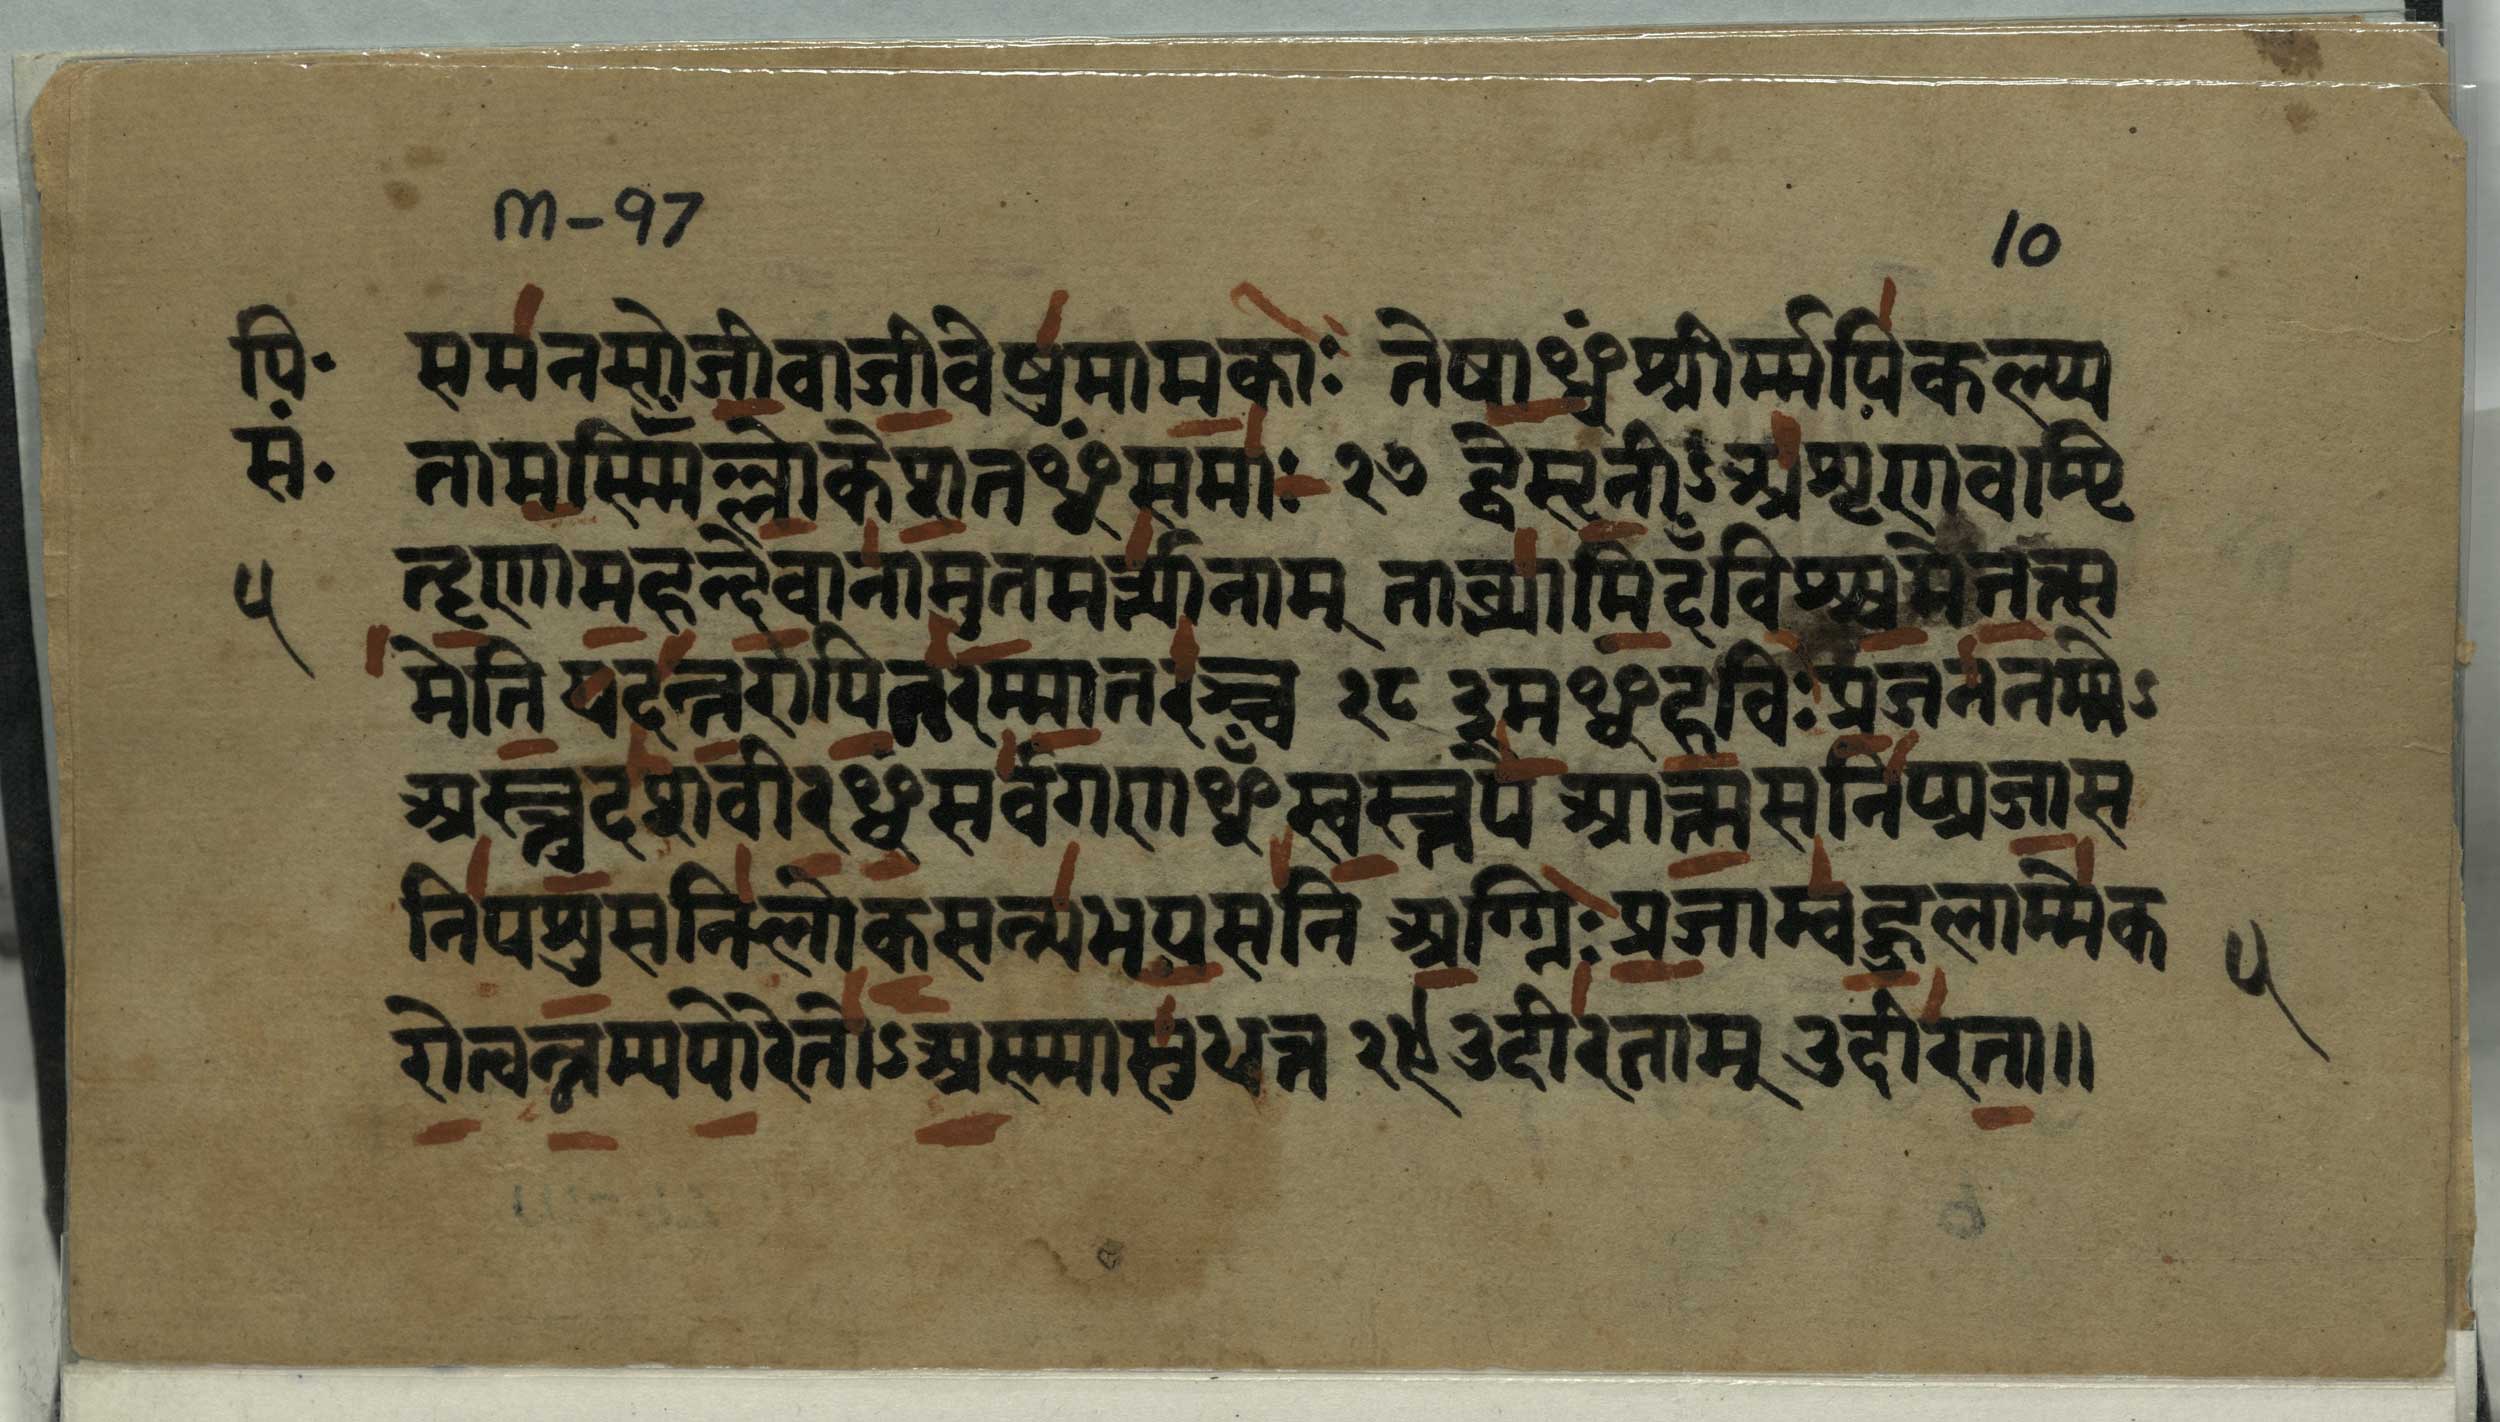 m-97
10
पि॰ समनसोजीवाजीवेषुमामकाः तेषाᳪंश्रीर्म्मयिकल्प
सं॰ तामस्मिँल्लोकेशतᳪंसमाः २७ द्वेसृतीऽअशृणवाम्पि
५ तॄणामहन्देवानामुतमर्त्यानाम् ताब्भ्यामिदँविश्श्वमेजत्स
मेति यदन्तरापितरम्मातरञ्च २८ इदᳪहविःप्रजननम्मेऽ
अस्तुदशवीरᳪंसर्वगणᳪंस्वस्तये आत्मसनिप्प्रजास
निपशुसनिलोकसन्यभयसनि अग्ग्निःप्रजाम्बहुलाम्मेक
५
रोत्वन्नम्पयोरेतोऽअस्मासुधत्त २९ उदीरताम् उदीरता॥